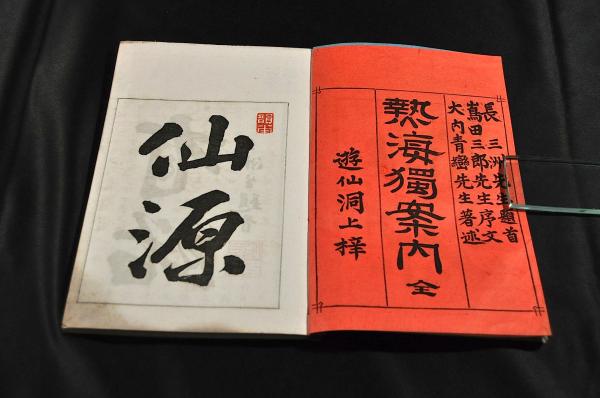 長三洲先生題首
嶌田三郎先生序文
大内青巒先生著述
熱海獨案内 全
遊仙洞上梓
仙源